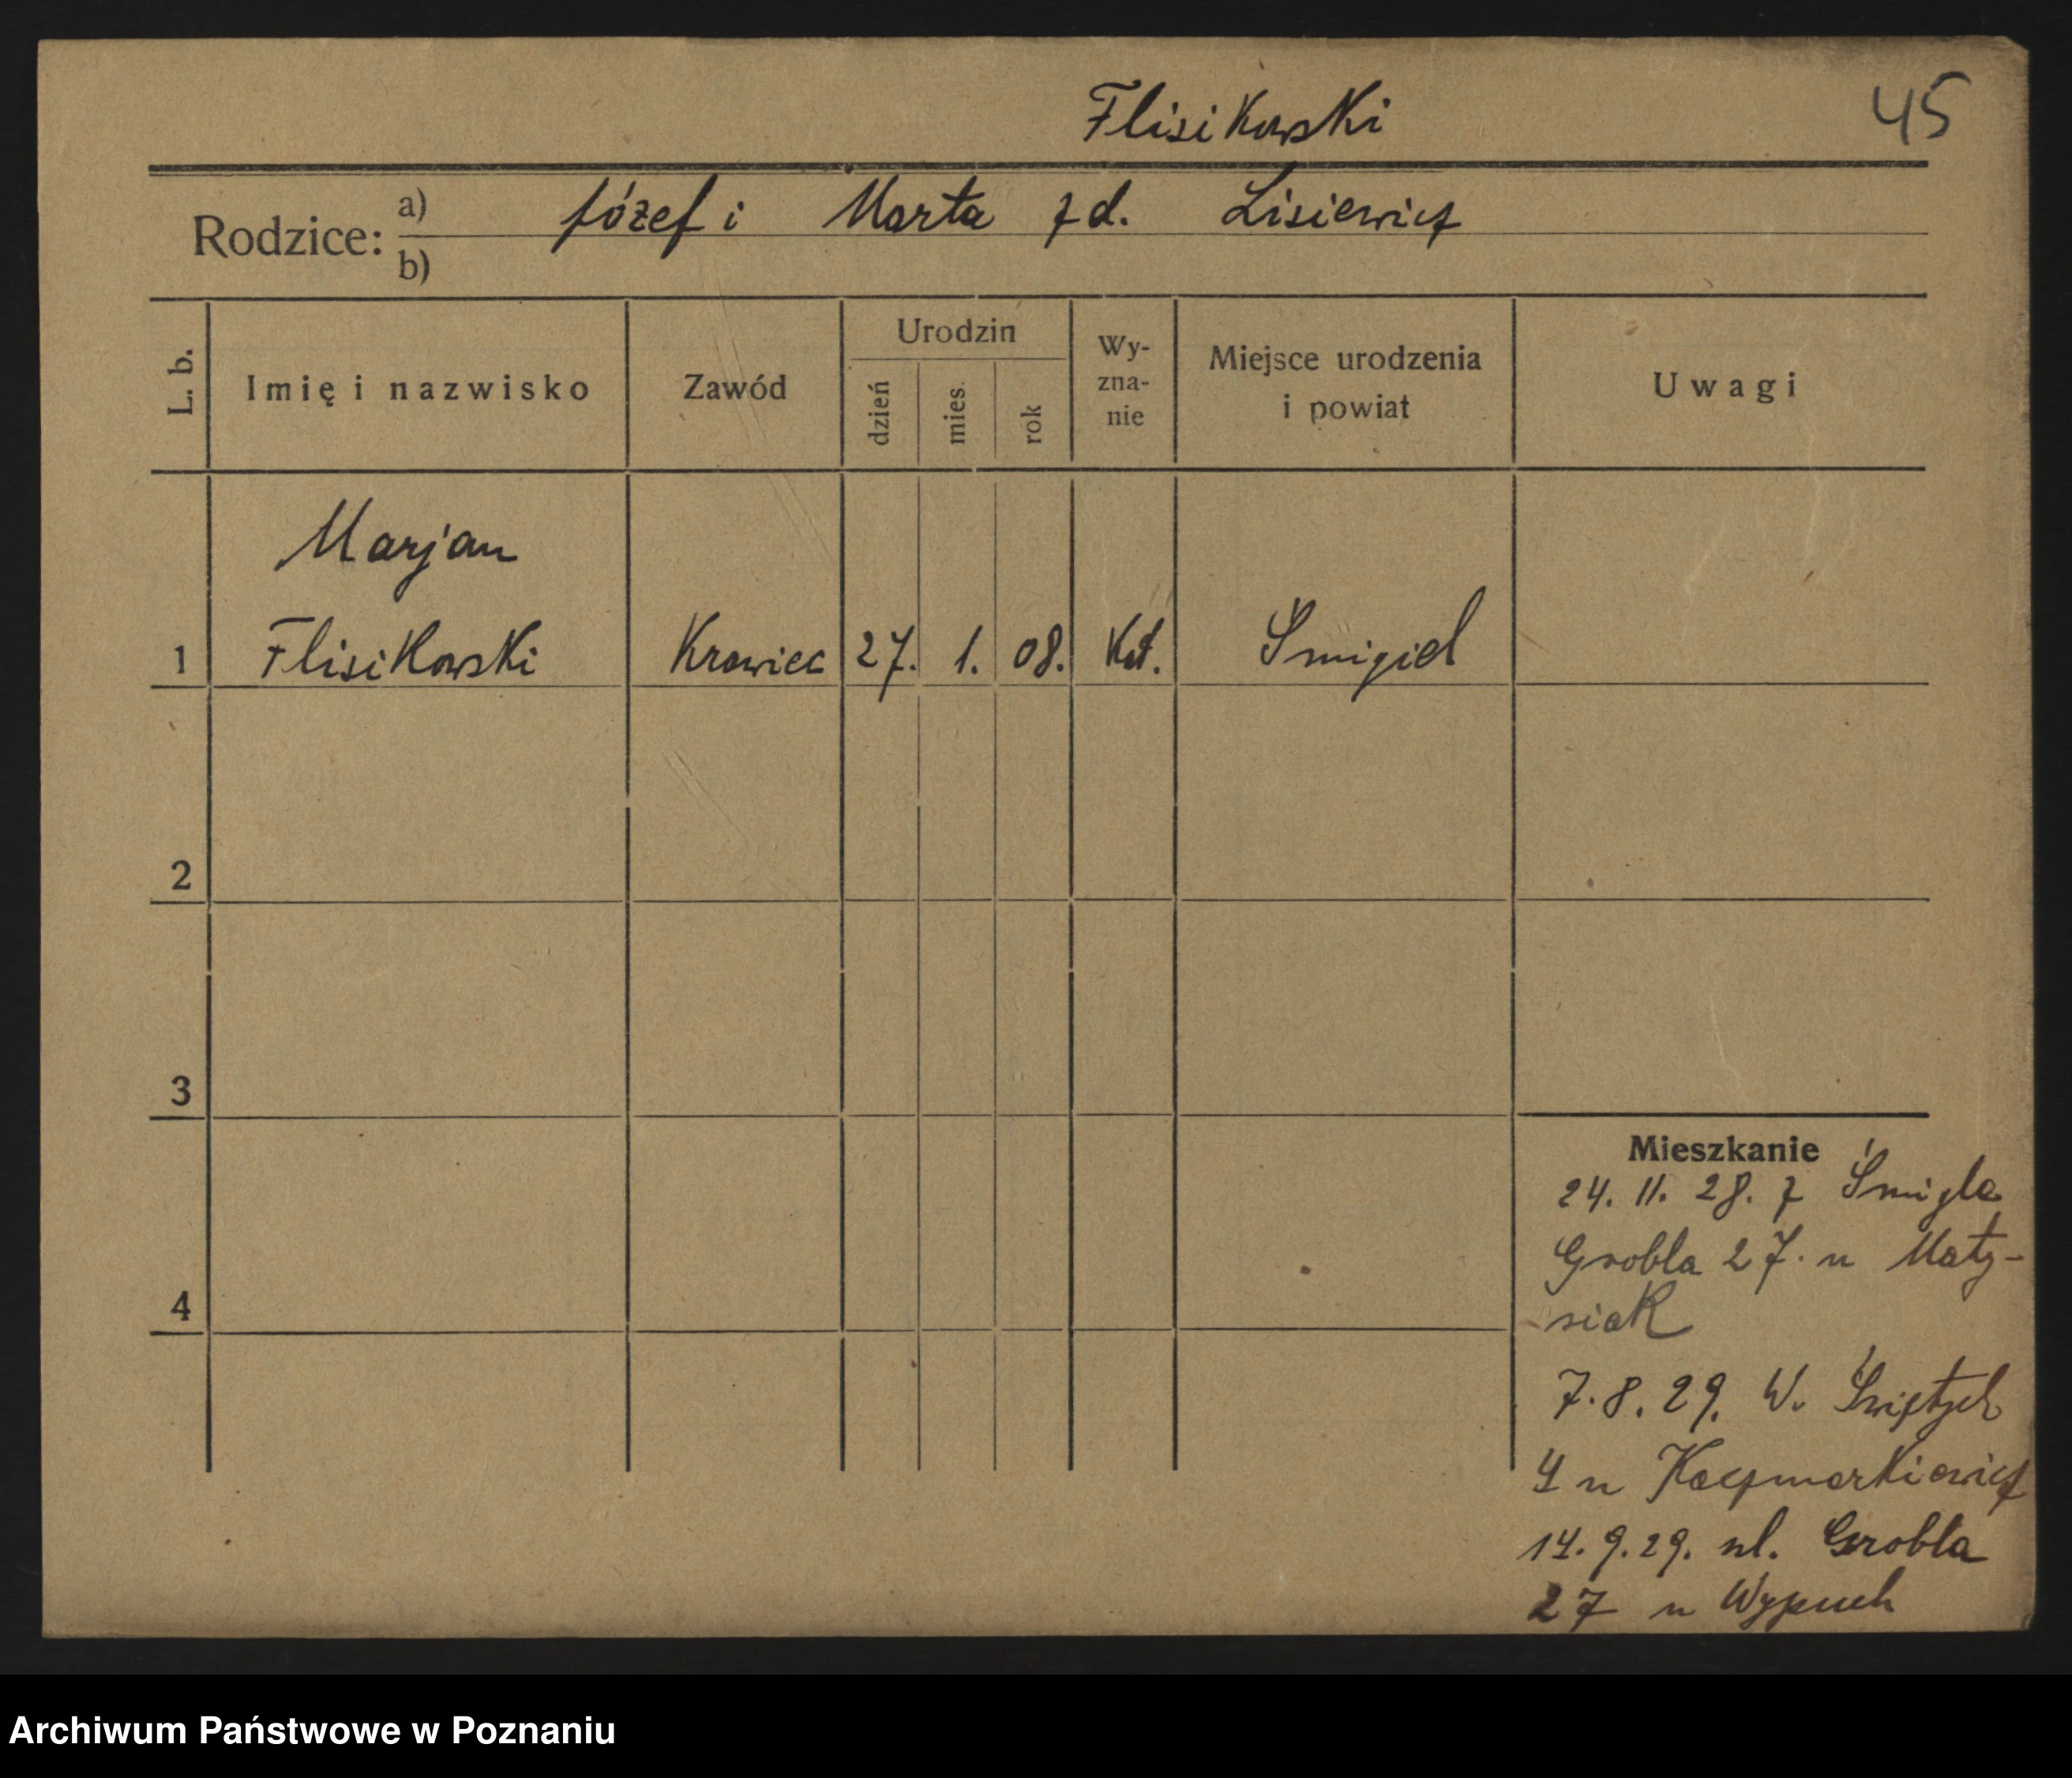 Flisikowski
45
Rodzice:
a) Józef i Marta z d. Lisiewicz
b)
L. b.
Imię i nazwisko
Zawód
Urodzin
dzień
mies.
rok
Wy-
zna-
nie
Miejsce urodzenia
i powiat
Uwagi
Marjan
1 Flisikowski Krawiec 27. 1. 08. Kat. Śmigiel
2
3
4
Mieszkanie
24. 11. 28. z Śmigla
Grobla 27. u Maty-
siak
7. 8. 29. W. Świętych
4 u Kaczmarkiewicz
14. 9. 29. ul. Grobla
27 u Wypuch
Archiwum Państwowe w Poznaniu